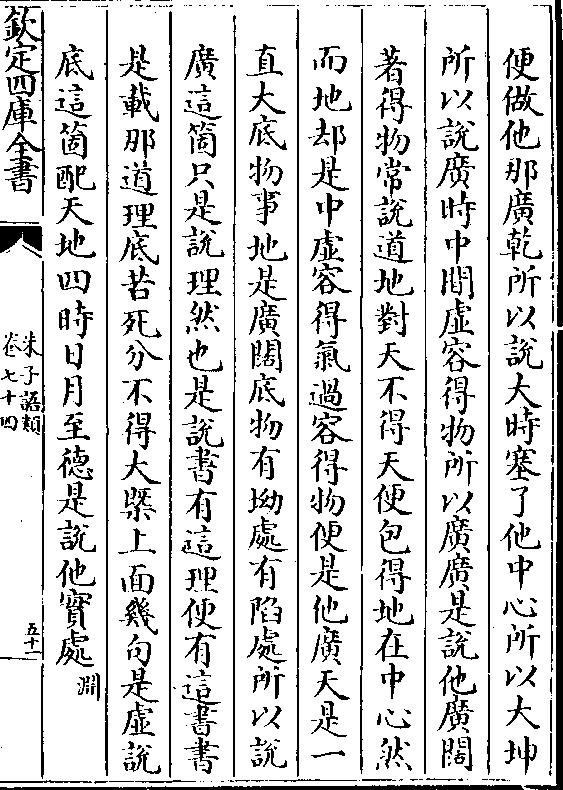 便做他那廣乾所以說大時塞了他中心所以大坤
所以說廣時中間虛容得物所以廣廣是說他廣闊
著得物常說道地對天不得天便包得地在中心然
而地却是中虛容得氣過容得物便是他廣天是一
直大底物事地是廣闊底物有坳處有陷處所以說
廣這箇只是說理然也是說書有這理便有這書書
是載那道理底若死分不得大槩上面幾句是虛說
底這箇配天地四時日月至德是說他實處淵
欽定四庫全書
朱子語類
卷七十四
五十一